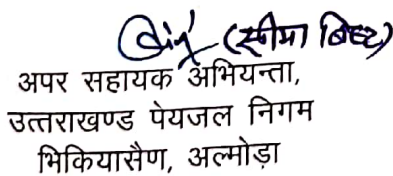 (सीमा बिष्ट)
अपर सहायक अभियन्ता,
उत्तराखण्ड पेयजल निगम
भिकियासैण, अल्मोड़ा